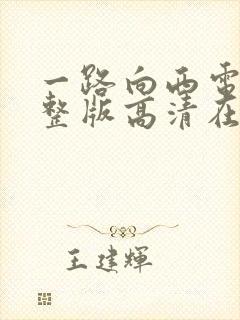 一路向西电
整版高清在
王建辉